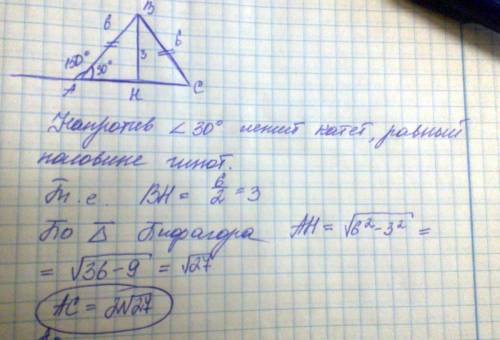 B
6
6
3
150°
30°
A
H
C
Напротив ∠30° лежит катет, равный
половине гипот.
Т.е. BH = 6/2 = 3
По △ Пифагора AH = √6²-3² =
= √36-9 = √27
AC = 2√27